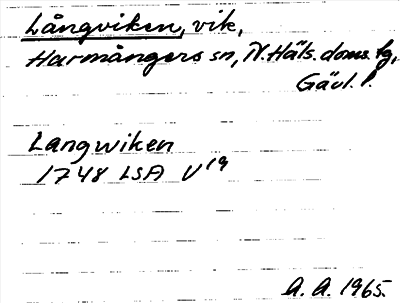 Långviken, vik,
Harmångers sn, N. Häls. doms. tg,
Gävl. l.
Langwiken
1748 LSA V19
A. A. 1965.